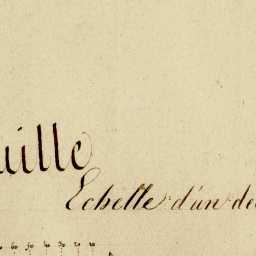 uille
Echelle d'un de